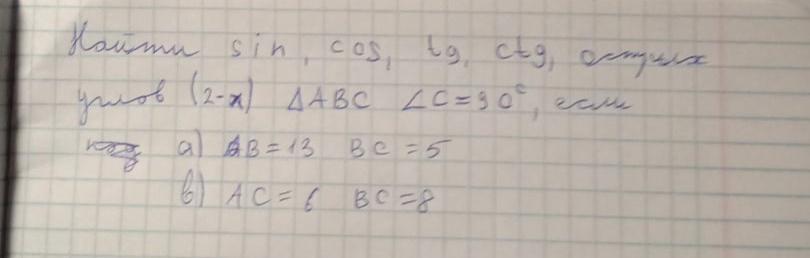 Найти sin, cos, tg, ctg, острых
углов (2-х) ΔABC ∠C=90°, если
а) AB=13 BC=5
в) AC=6 BC=8